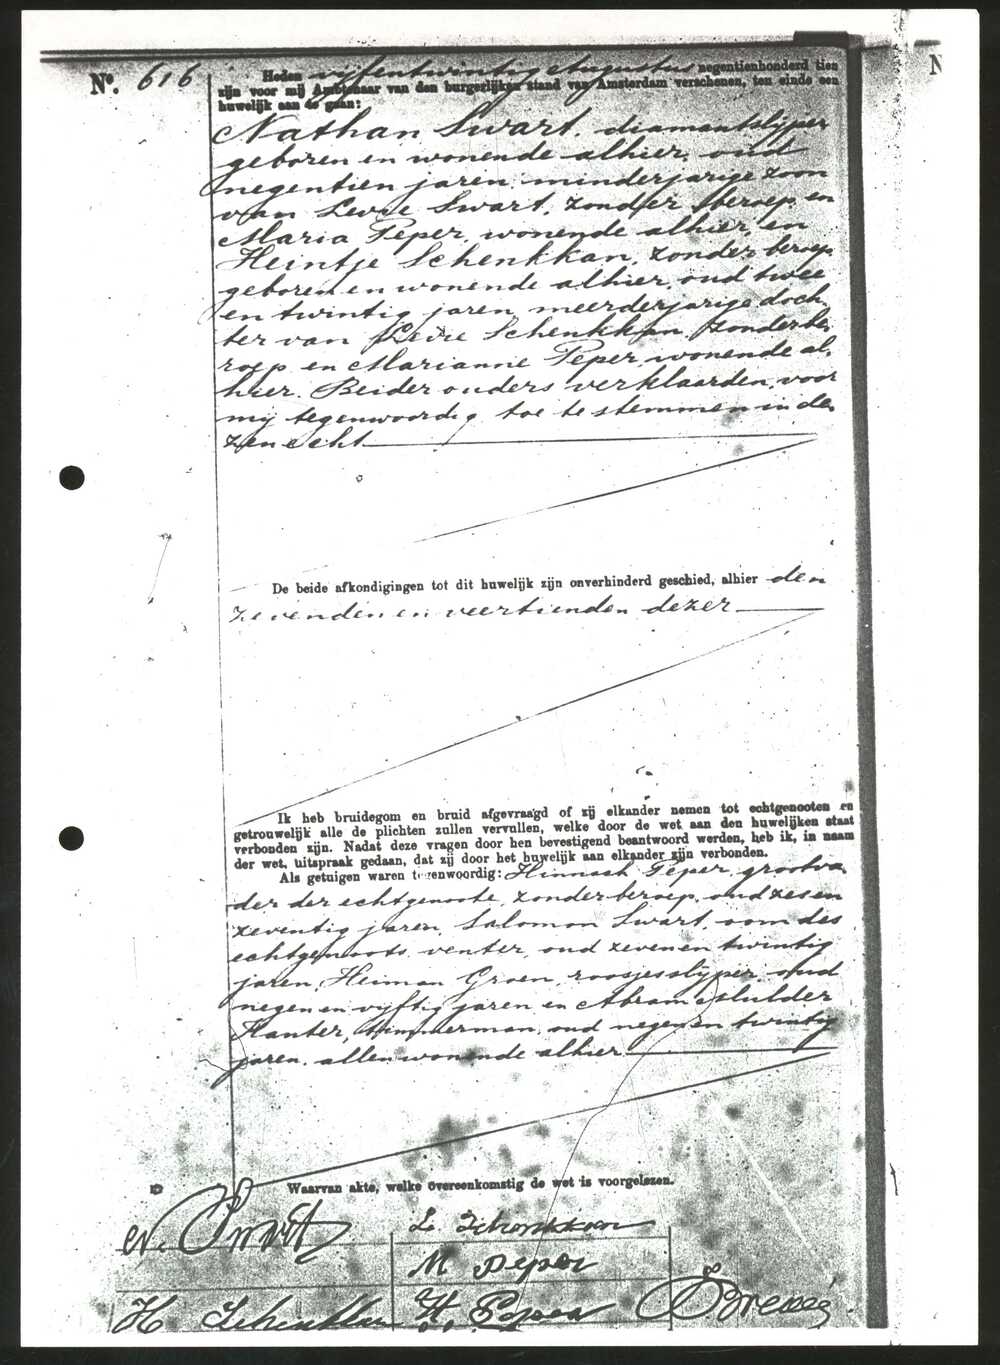 No. 616 Heden vijfentwintig Augustus negentienhonderd tien
zijn voor mij Ambtenaar van den burgerlijken stand van Amsterdam verschenen, ten einde een
huwelijk aan te gaan:
Nathan Swart, diamantslijper
geboren en wonende alhier, oud
negentien jaren, minderjarige zoon
van Levie Swart, zonder beroep, en
Maria Peper, wonende alhier, en
Heintje Schenkkan, zonder beroep
geboren en wonende alhier, oud twee
en twintig jaren, meerderjarige doch-
ter van Levie Schenkkan, zonder be-
roep, en Marianne Peper, wonende al-
hier. Beider ouders verklaarden, voor
mij tegenwoordig toe te stemmen in de-
zen echt
De beide afkondigingen tot dit huwelijk zijn onverhinderd geschied, alhier den
zevenden en veertienden dezer
Ik heb bruidegom en bruid afgevraagd of zij elkander nemen tot echtgenooten en
getrouwelijk alle de plichten zullen vervullen, welke door de wet aan den huwelijken staat
verbonden zijn. Nadat deze vragen door hen bevestigend beantwoord werden, heb ik, in naam
der wet, uitspraak gedaan, dat zij door het huwelijk aan elkander zijn verbonden.
Als getuigen waren tegenwoordig: Peper, grootva-
der der echtgenoote, zonder beroep, oud zes en
zeventig jaren, Salomon Swart, oom des
echtgenoots, venter, oud zeven en twintig
jaren, Heiman Groen, roosjesslijper, oud
negen en vijftig jaren en Abram
timmerman, oud negen en twintig
jaren, allen wonende alhier
Waarvan akte, welke overeenkomstig de wet is voorgelezen.
N. Swart
L. Schenkkan
M Peper
H Schenkkan
H. Peper